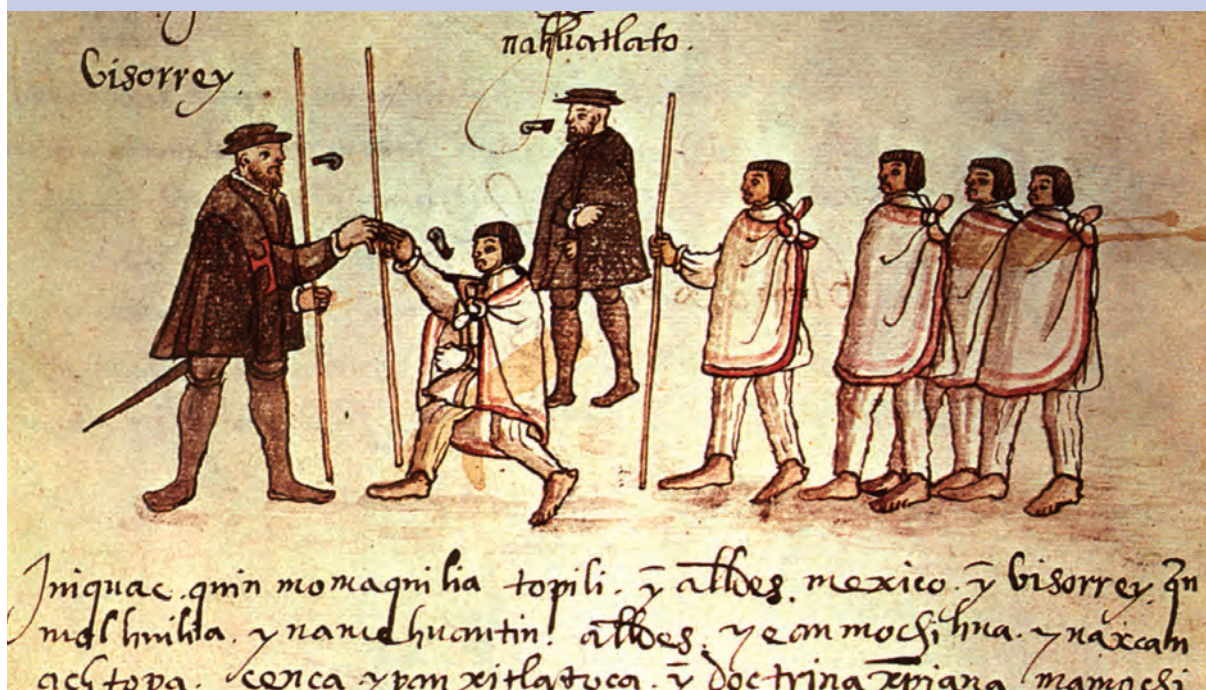 nahuatlato.
Visorrey.
Iniquac. quin momaquilia topili. ỹ alldes. mexico. ỹ Visorrey. qn
molhuilia. ynamehuantin. alldes. ye anmochihua. ynaxcan
achtopa. cenca ypan xitlatoca. ỹ doctrina xpiana mamochi